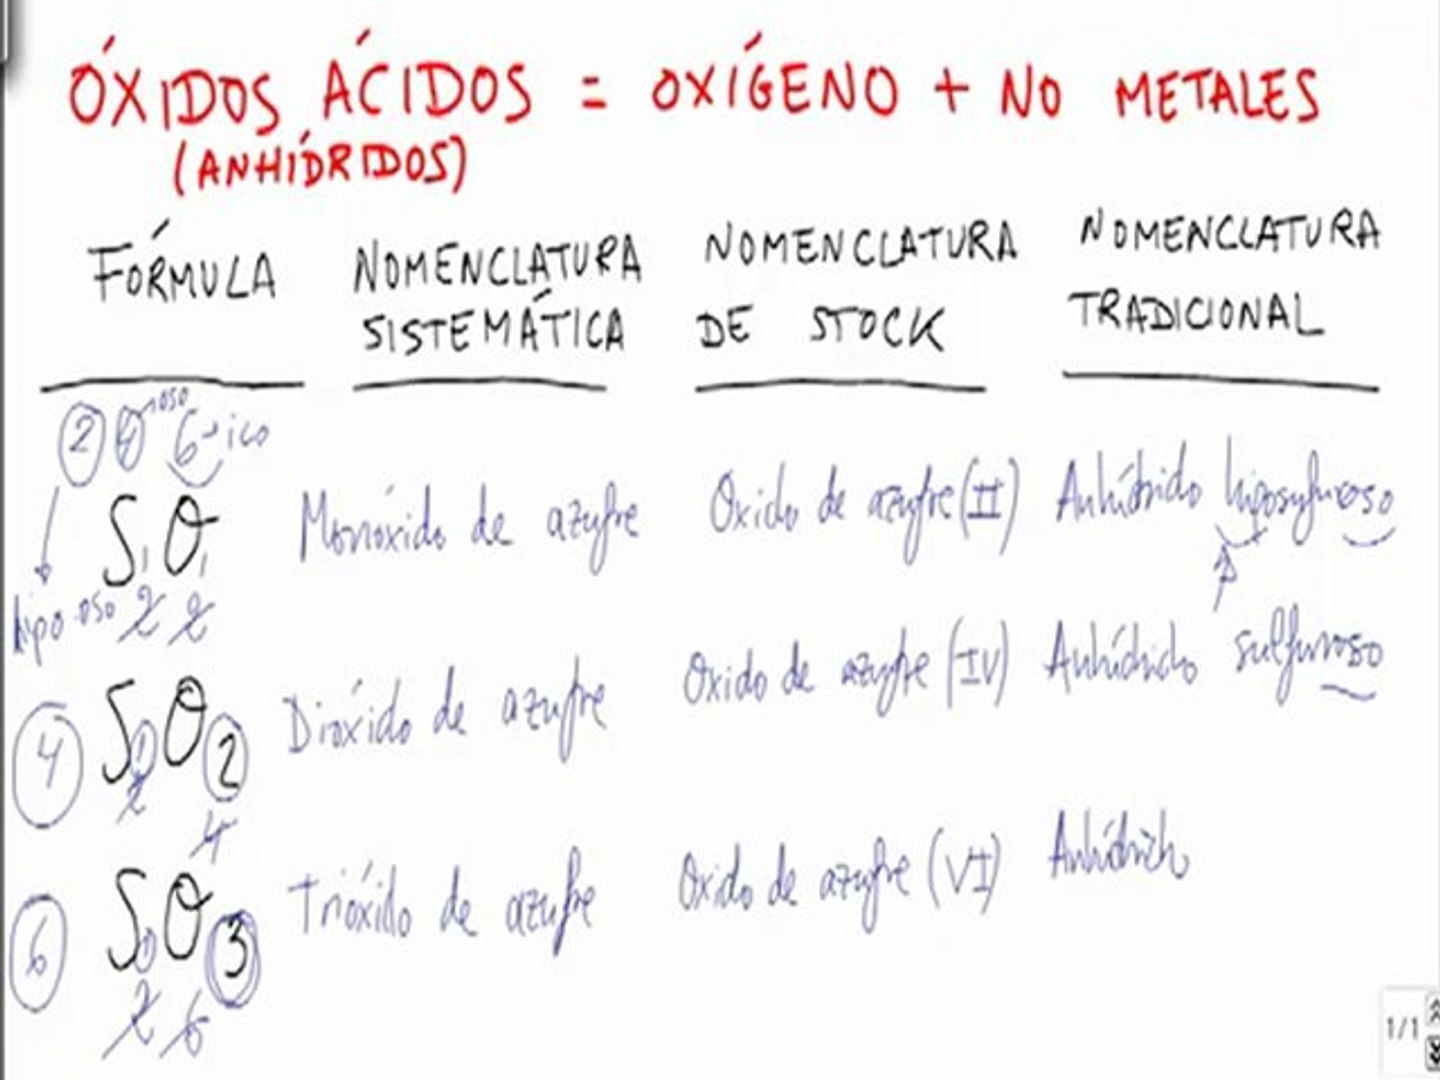 ÓXIDOS ÁCIDOS = OXÍGENO + NO METALES
(ANHÍDRIDOS)
FÓRMULA NOMENCLATURA SISTEMÁTICA NOMENCLATURA DE STOCK NOMENCLATURA TRADICIONAL
2 4 oso 6 → ico
S1O1 Monóxido de azufre Oxido de azufre (II) Anhídrido hiposufuroso
hipo-oso 2 2
4 S1O2 Dióxido de azufre Oxido de azufre (IV) Anhídrido sulfuroso
2 4
6 S1O3 Trióxido de azufre Oxido de azufre (VI) Anhídrido
2 6
1/1